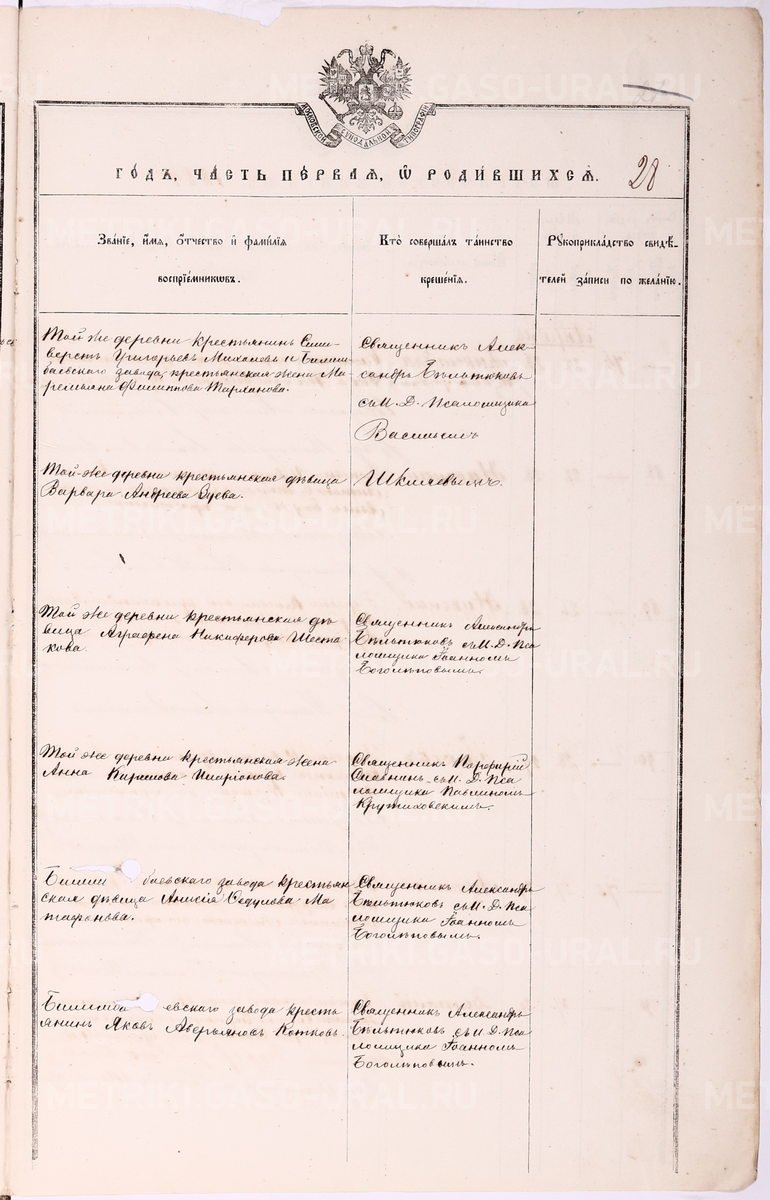 МОСКОВСКОЙ СѴНОДАЛЬНОЙ ТИПОГРАФІИ
ГОДЪ, ЧАСТЬ ПЕРВАЯ, Ѿ РОДИВШИХСЯ.
28
Званіе, имя, отчество и фамилія
воспріемниковъ.
Кто совершалъ таинство
крещенія.
Рукоприкладство свидѣ-
телей записи по желанію.
Той же деревни крестьянинъ Сили-
верстъ Григорьевъ Михалевъ и Билим-
баевскаго завода, крестьянская жена Ма-
ремьяна Филиппова Тарханова.
Священникъ Алек-
сандръ Бѣльтюковъ
съ И. Д. Псаломщика
Васильемъ
Той-же деревни крестьянская дѣвица
Варвара Андреева
Шкляевымъ.
Той же деревни крестьянская дѣ-
вица Аграфена Никиферова Шеста-
кова.
Священникъ Александръ
Бѣльтюковъ съ И. Д. Пса
ломщика Іоанномъ
Боголѣповымъ.
Той же деревни крестьянская жена
Анна Карпова Иларіонова.
Священникъ Порфирій
Славнинъ съ И. Д. Пса
ломщика Павлиномъ
Крутиховскимъ.
Билим баевскаго завода крестьян
ская дѣвица Анисія Федулова Ма-
тафонова.
Священникъ Александръ
Бѣльтюковъ съ И. Д. Пса
ломщика Іоанномъ
Боголѣповымъ.
Билимба евскаго завода кресть
янинъ Яковъ Аверьяновъ Котковъ.
Священникъ Александръ
Бѣльтюковъ съ И. Д. Пса
ломщика Іоанномъ
Боголѣповымъ.
METRIKI.GASO-URAL.RU